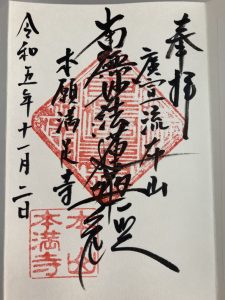 奉拝
廣宣流布山
南無妙法蓮華経
本願満足寺
令和五年十一月二日
本山
本満寺